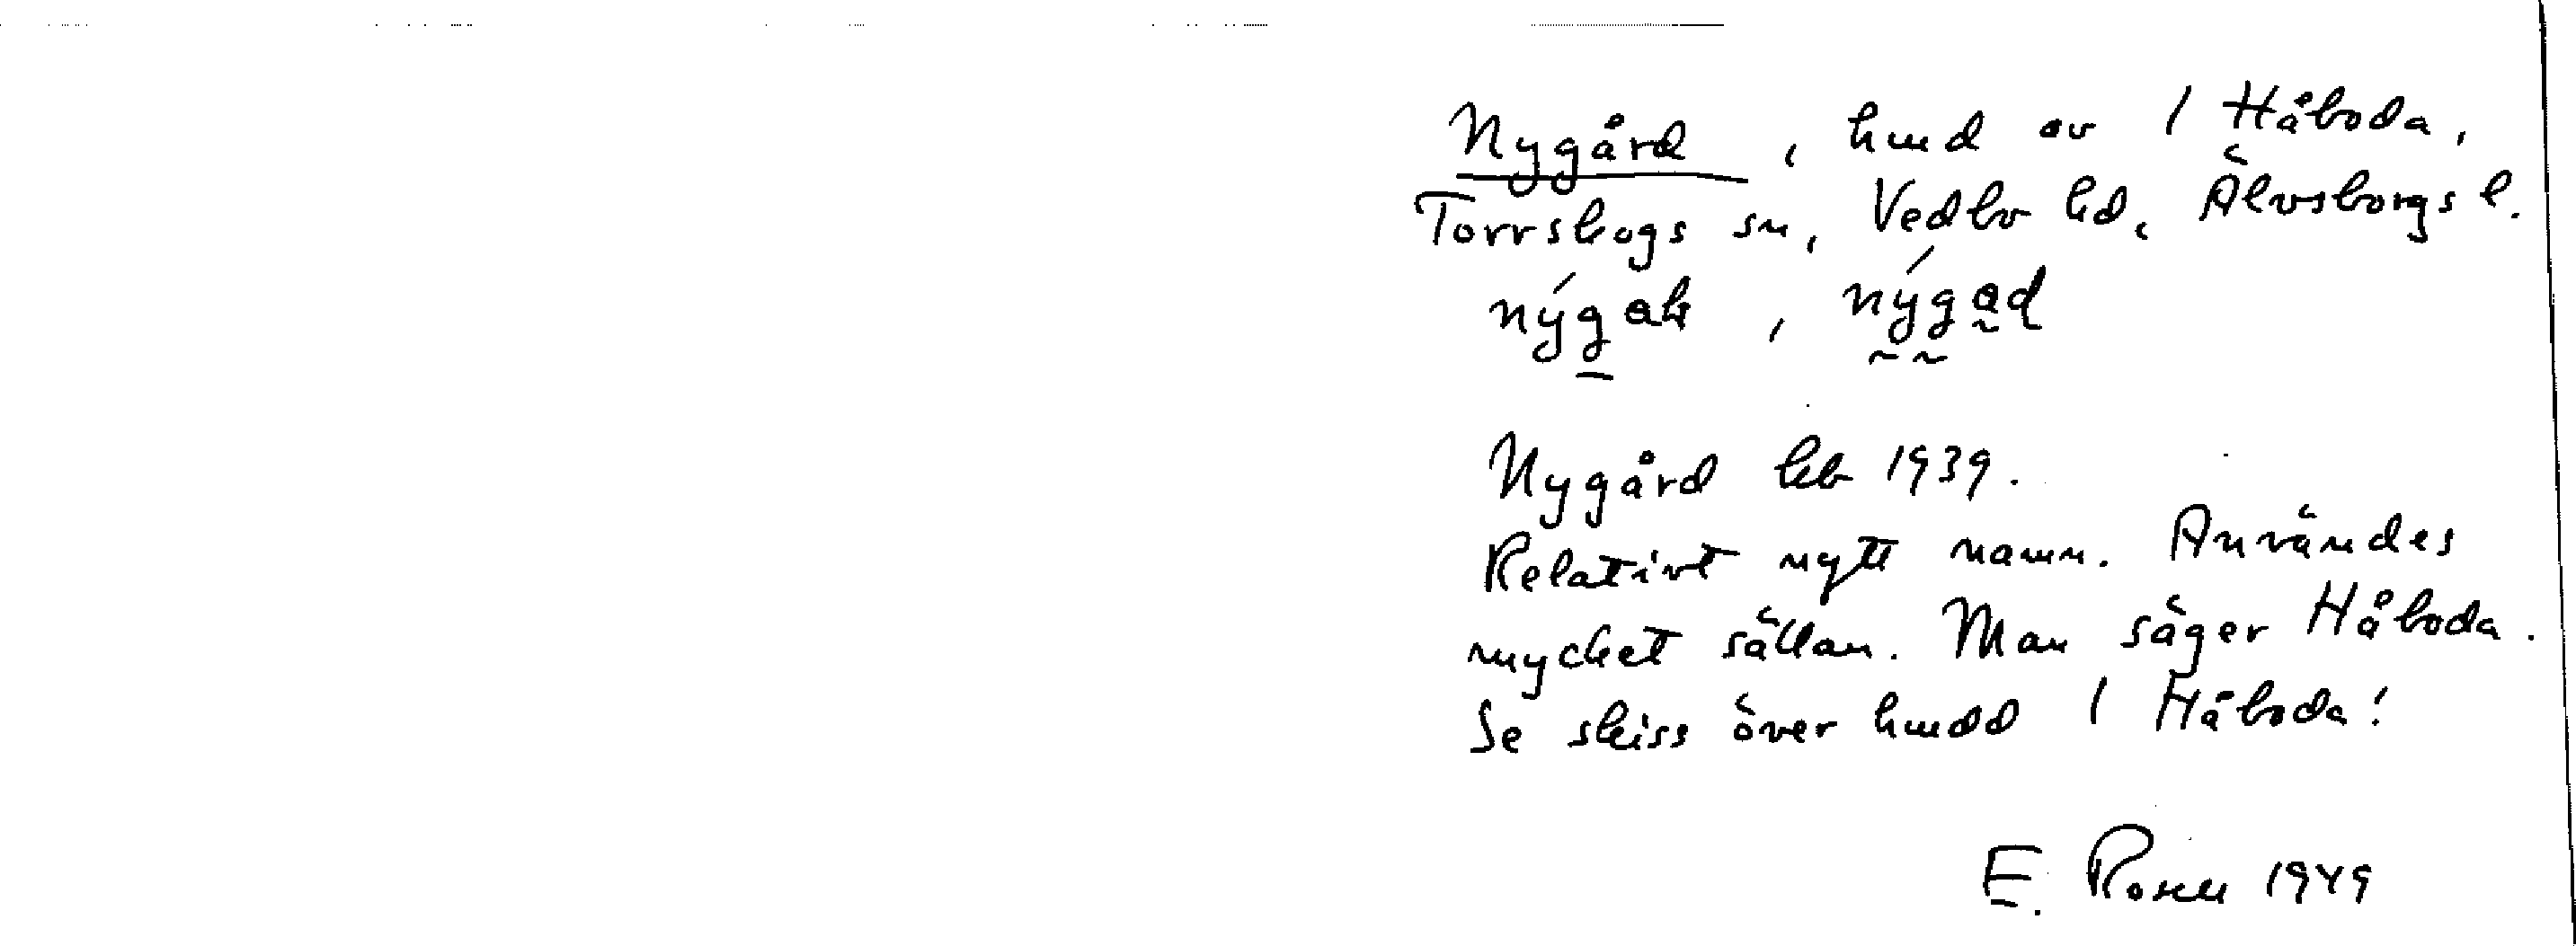 Nygård, hmd av 1 Håboda,
Torrskogs sn, Vedbo hd, Älvsborgs l.
Nygård kb 1939.
Relativt nytt namn. Användes
mycket sällan. Man säger Håboda.
Se skiss över hmdd 1 Håboda!
E. Rosell 1949